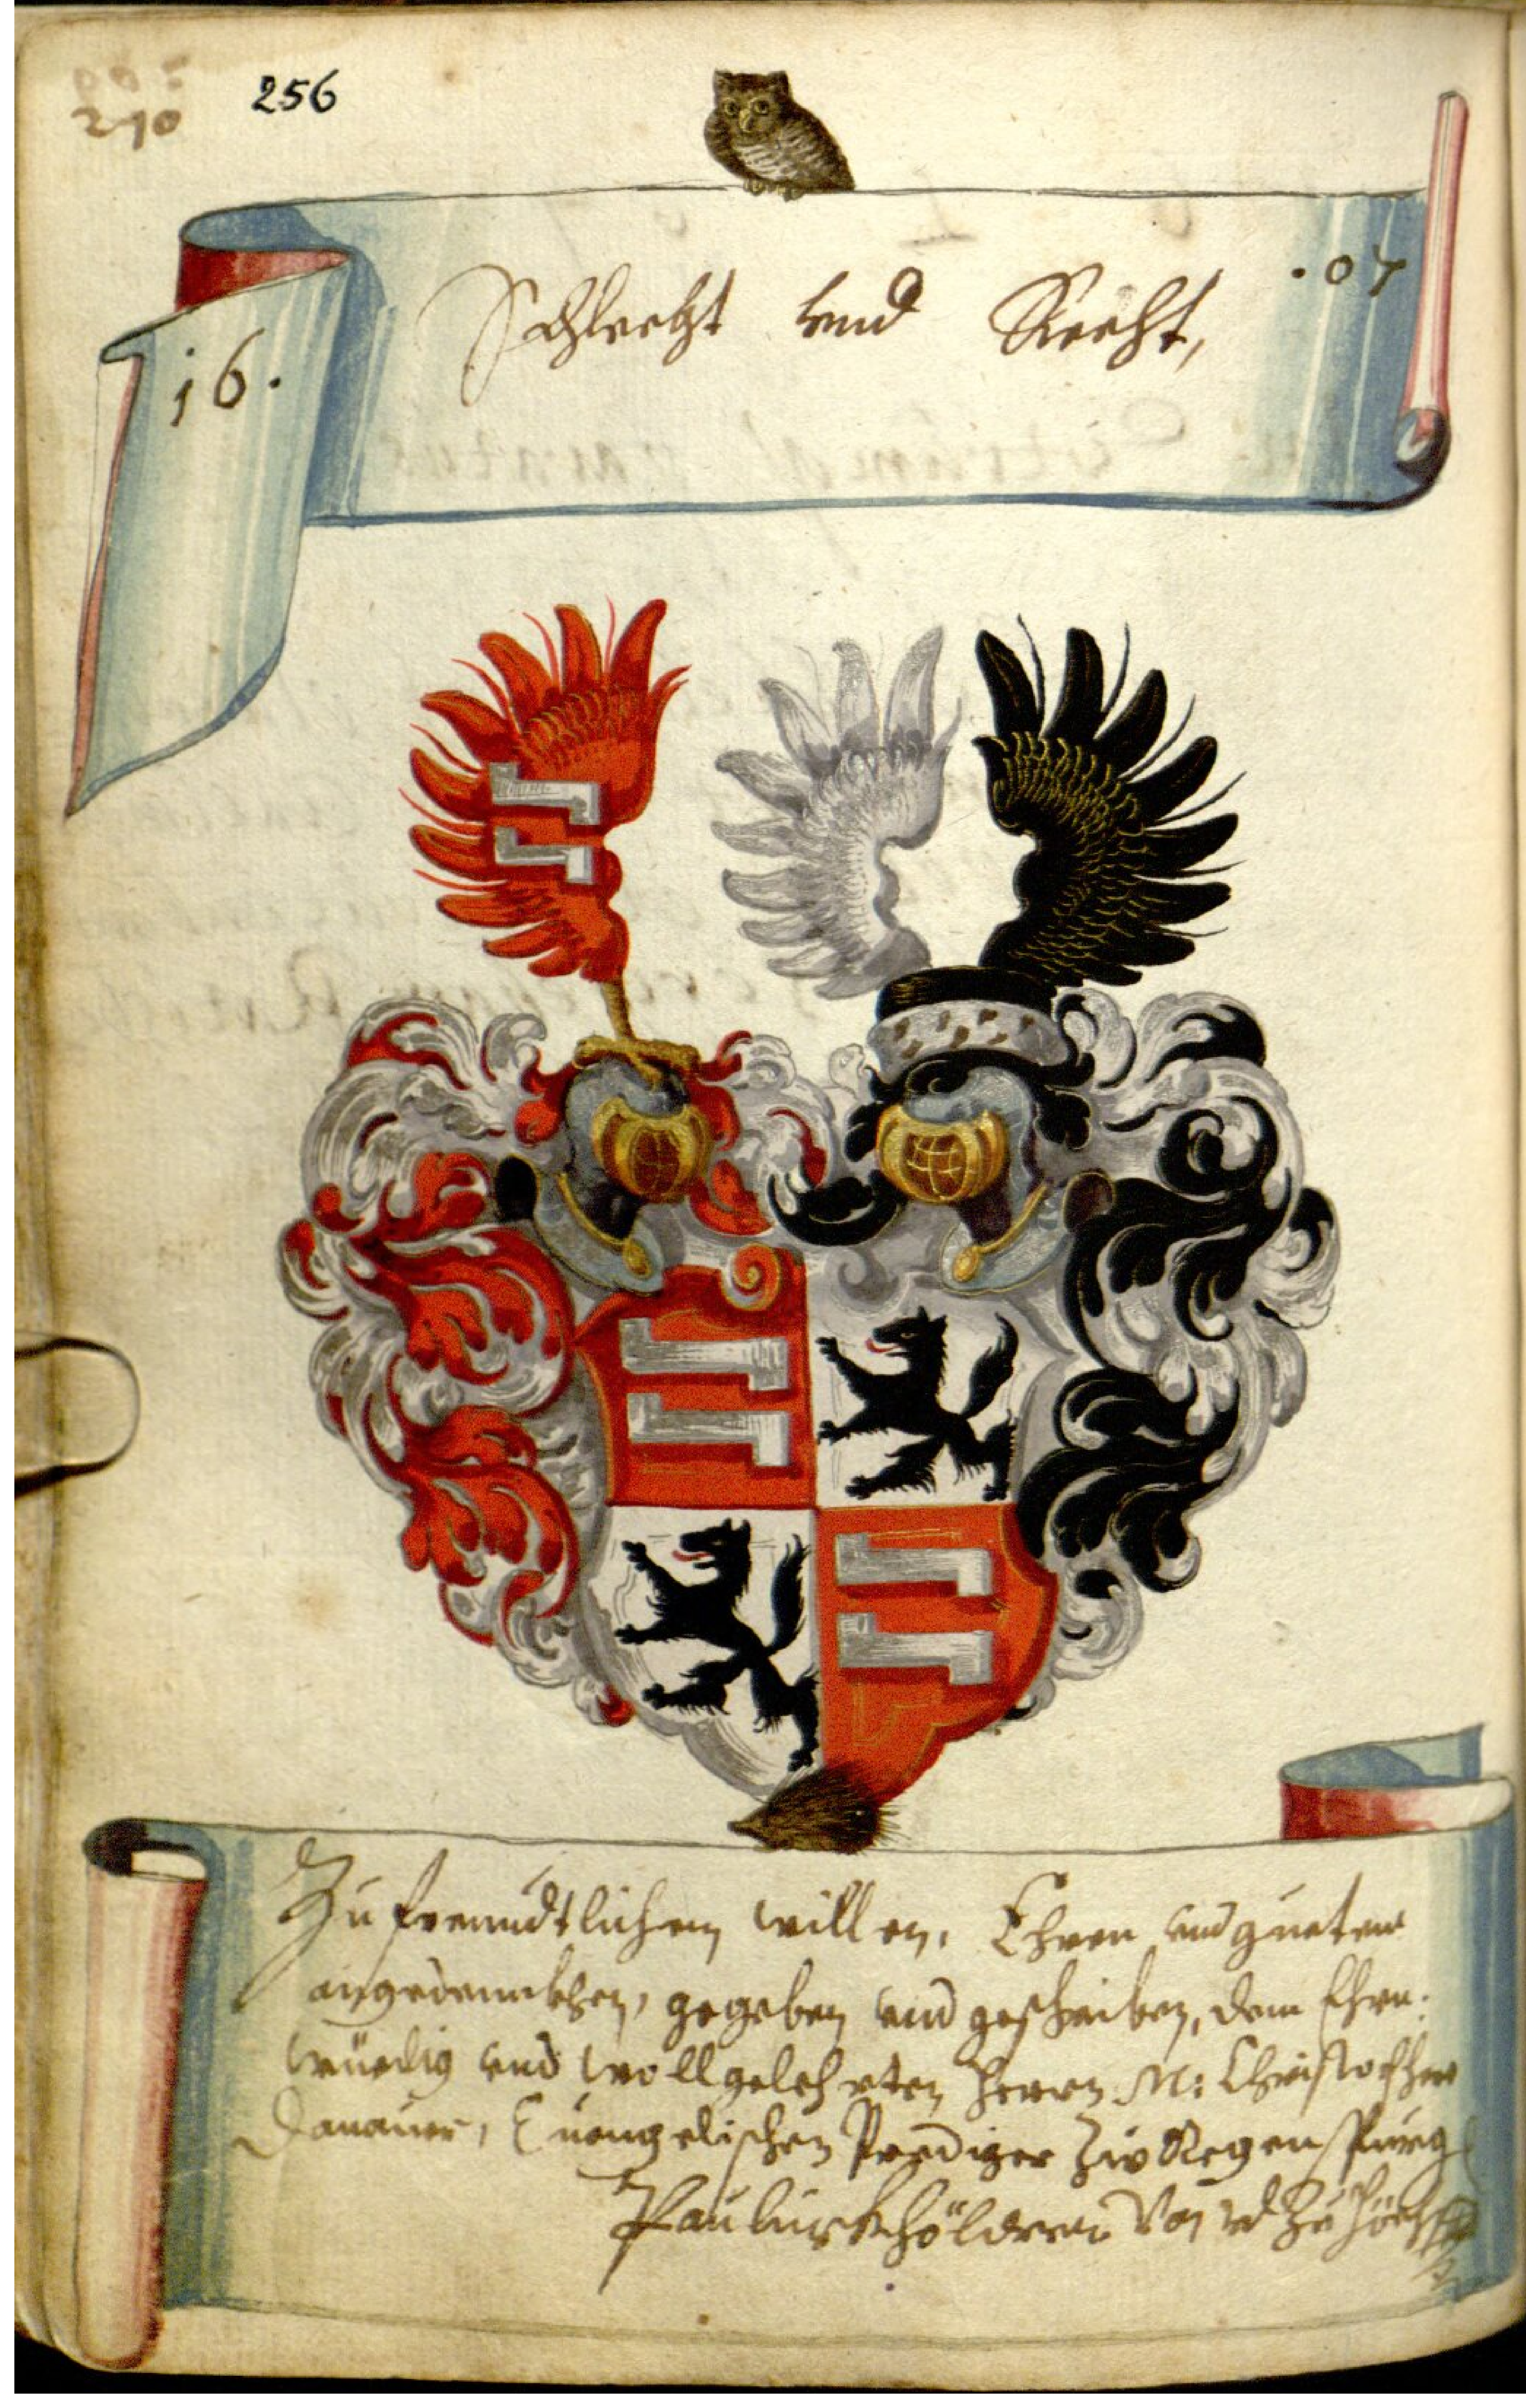 210
256
16. Schlecht vnd Recht, .07
Zu freundtlichen willen, Ehren vnd gueten
angedennkhen, gegeben vnd geschriben, dem Ehrn:
würdig vnd wollgelehrten Herrn M: Christoffen
Donauer, Euangelischen Prediger zu Regenspurg
Paulus Von vnd zu